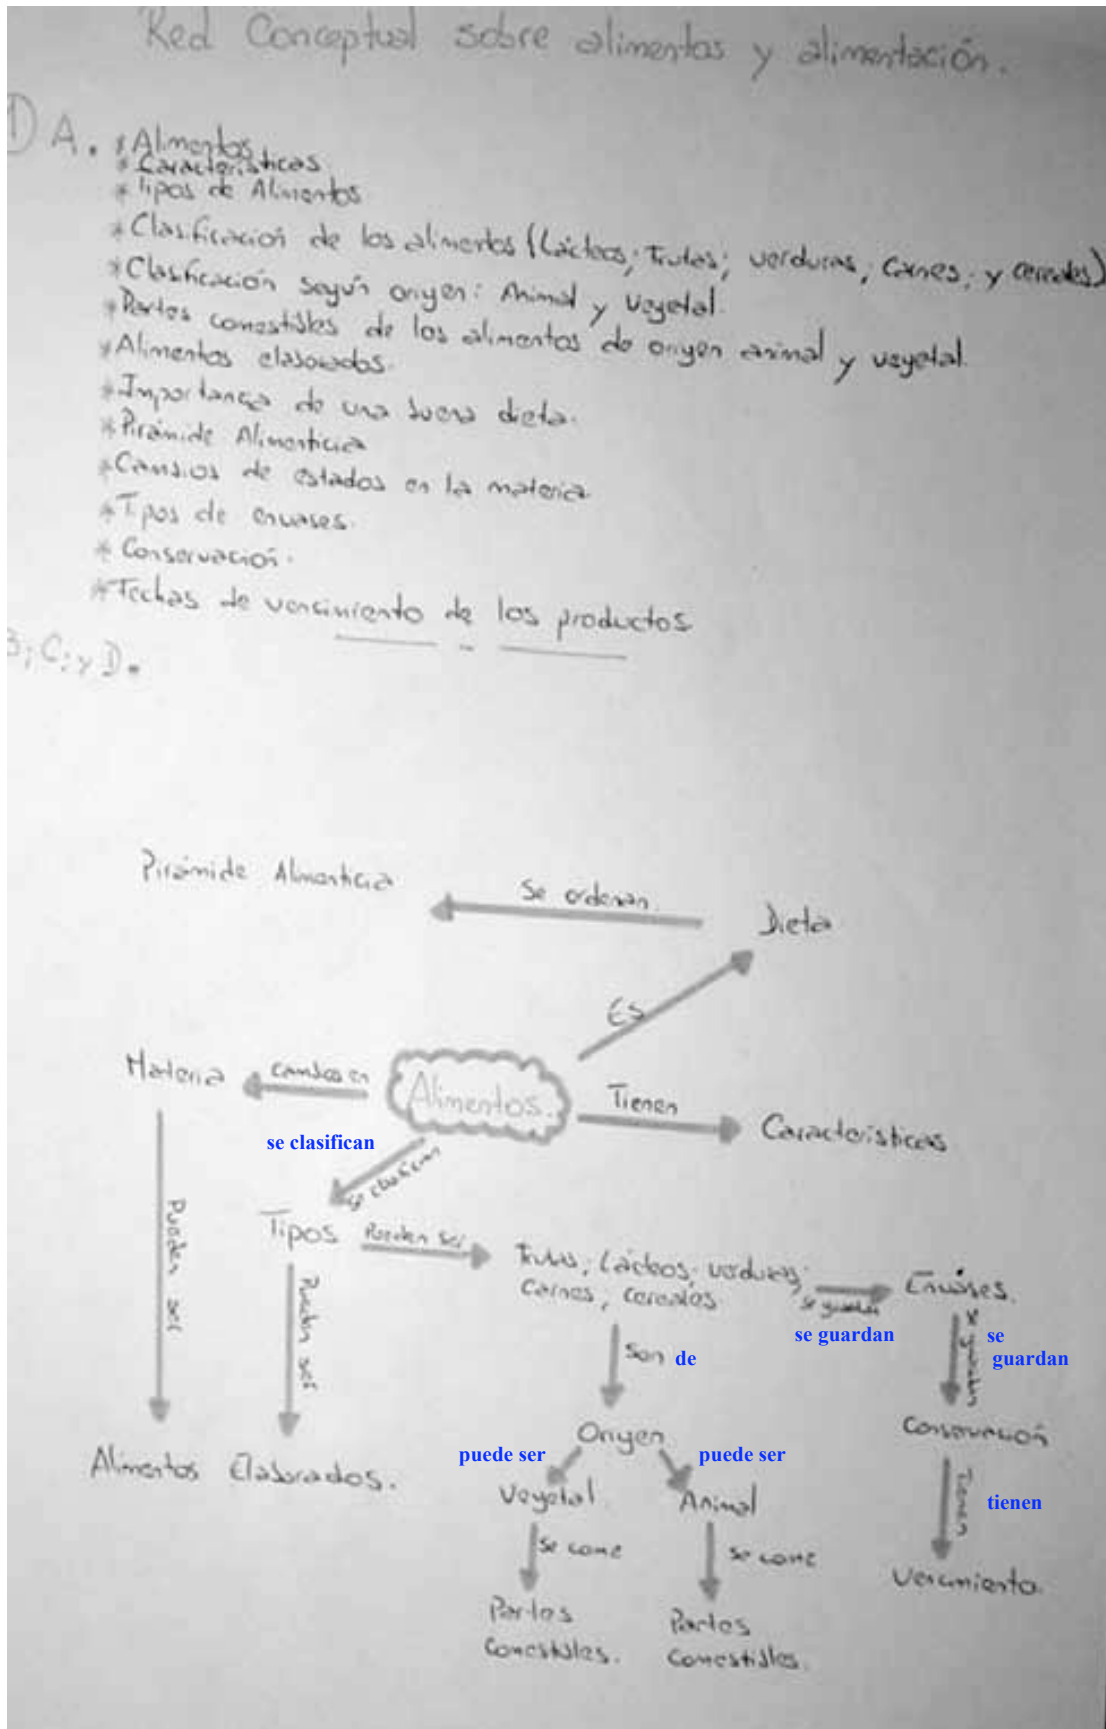 Red Conceptual sobre alimentos y alimentación.
1) A. * Alimentos
* Características
* Tipos de Alimentos
* Clasificación de los alimentos (Lácteos; Frutas; verduras; Carnes; y cereales)
* Clasificación según origen: Animal y Vegetal.
* Partes comestibles de los alimentos de origen animal y vegetal.
* Alimentos elaborados.
* Importancia de una buena dieta.
* Pirámide Alimenticia
* Cambios de estados en la materia
* Tipos de envases.
* Conservación.
* Fechas de vencimiento de los productos
B; C; y D.
Pirámide Alimenticia
Se ordenan.
Dieta
Es
Materia
cambios en
Alimentos.
Tienen
Características
se clasifican
se clasifican
Tipos
Pueden ser
Frutas; Lácteos; verduras;
Carnes; cereales
se guardan
se guardan
Envases.
Pueden ser
Pueden ser
Son de
se guardan
se
guardan
Origen
Conservación
puede ser
puede ser
Alimentos Elaborados.
Vegetal
Animal
Tienen
tienen
se come
se come
Vencimiento.
Partes
Comestibles.
Partes
Comestibles.